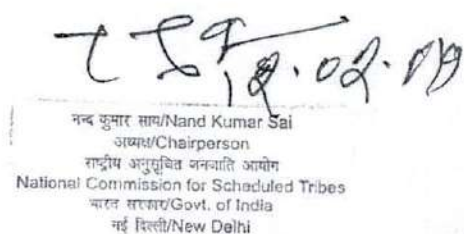 12.02.019
नन्द कुमार साय/Nand Kumar Sai
अध्यक्ष/Chairperson
राष्ट्रीय अनुसूचित जनजाति आयोग
National Commission for Scheduled Tribes
भारत सरकार/Govt. of India
नई दिल्ली/New Delhi